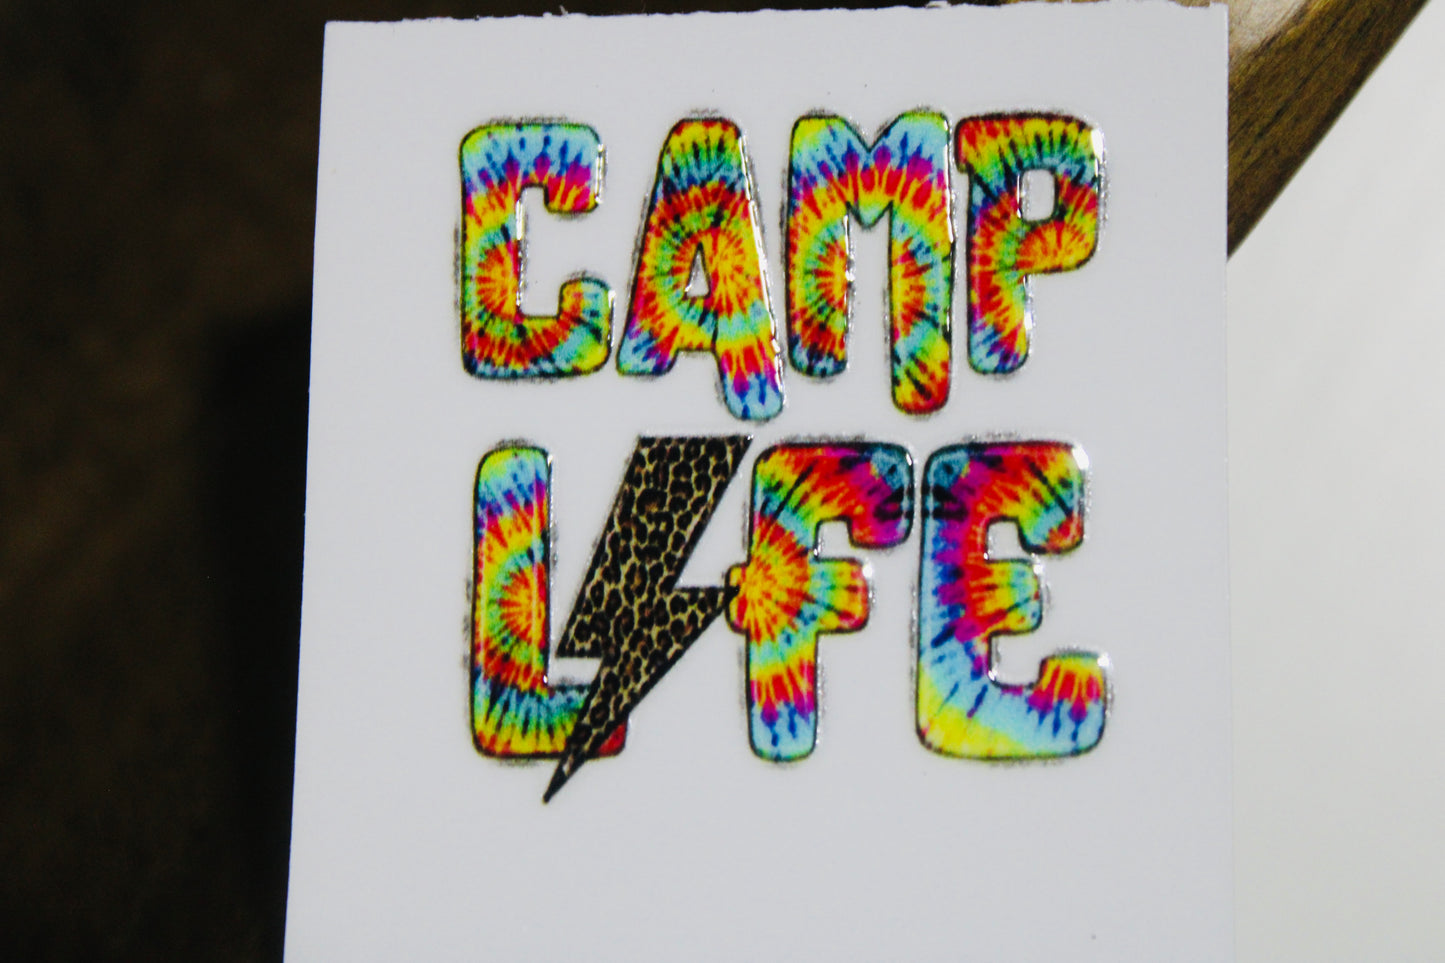 CAMP
L⚡FE